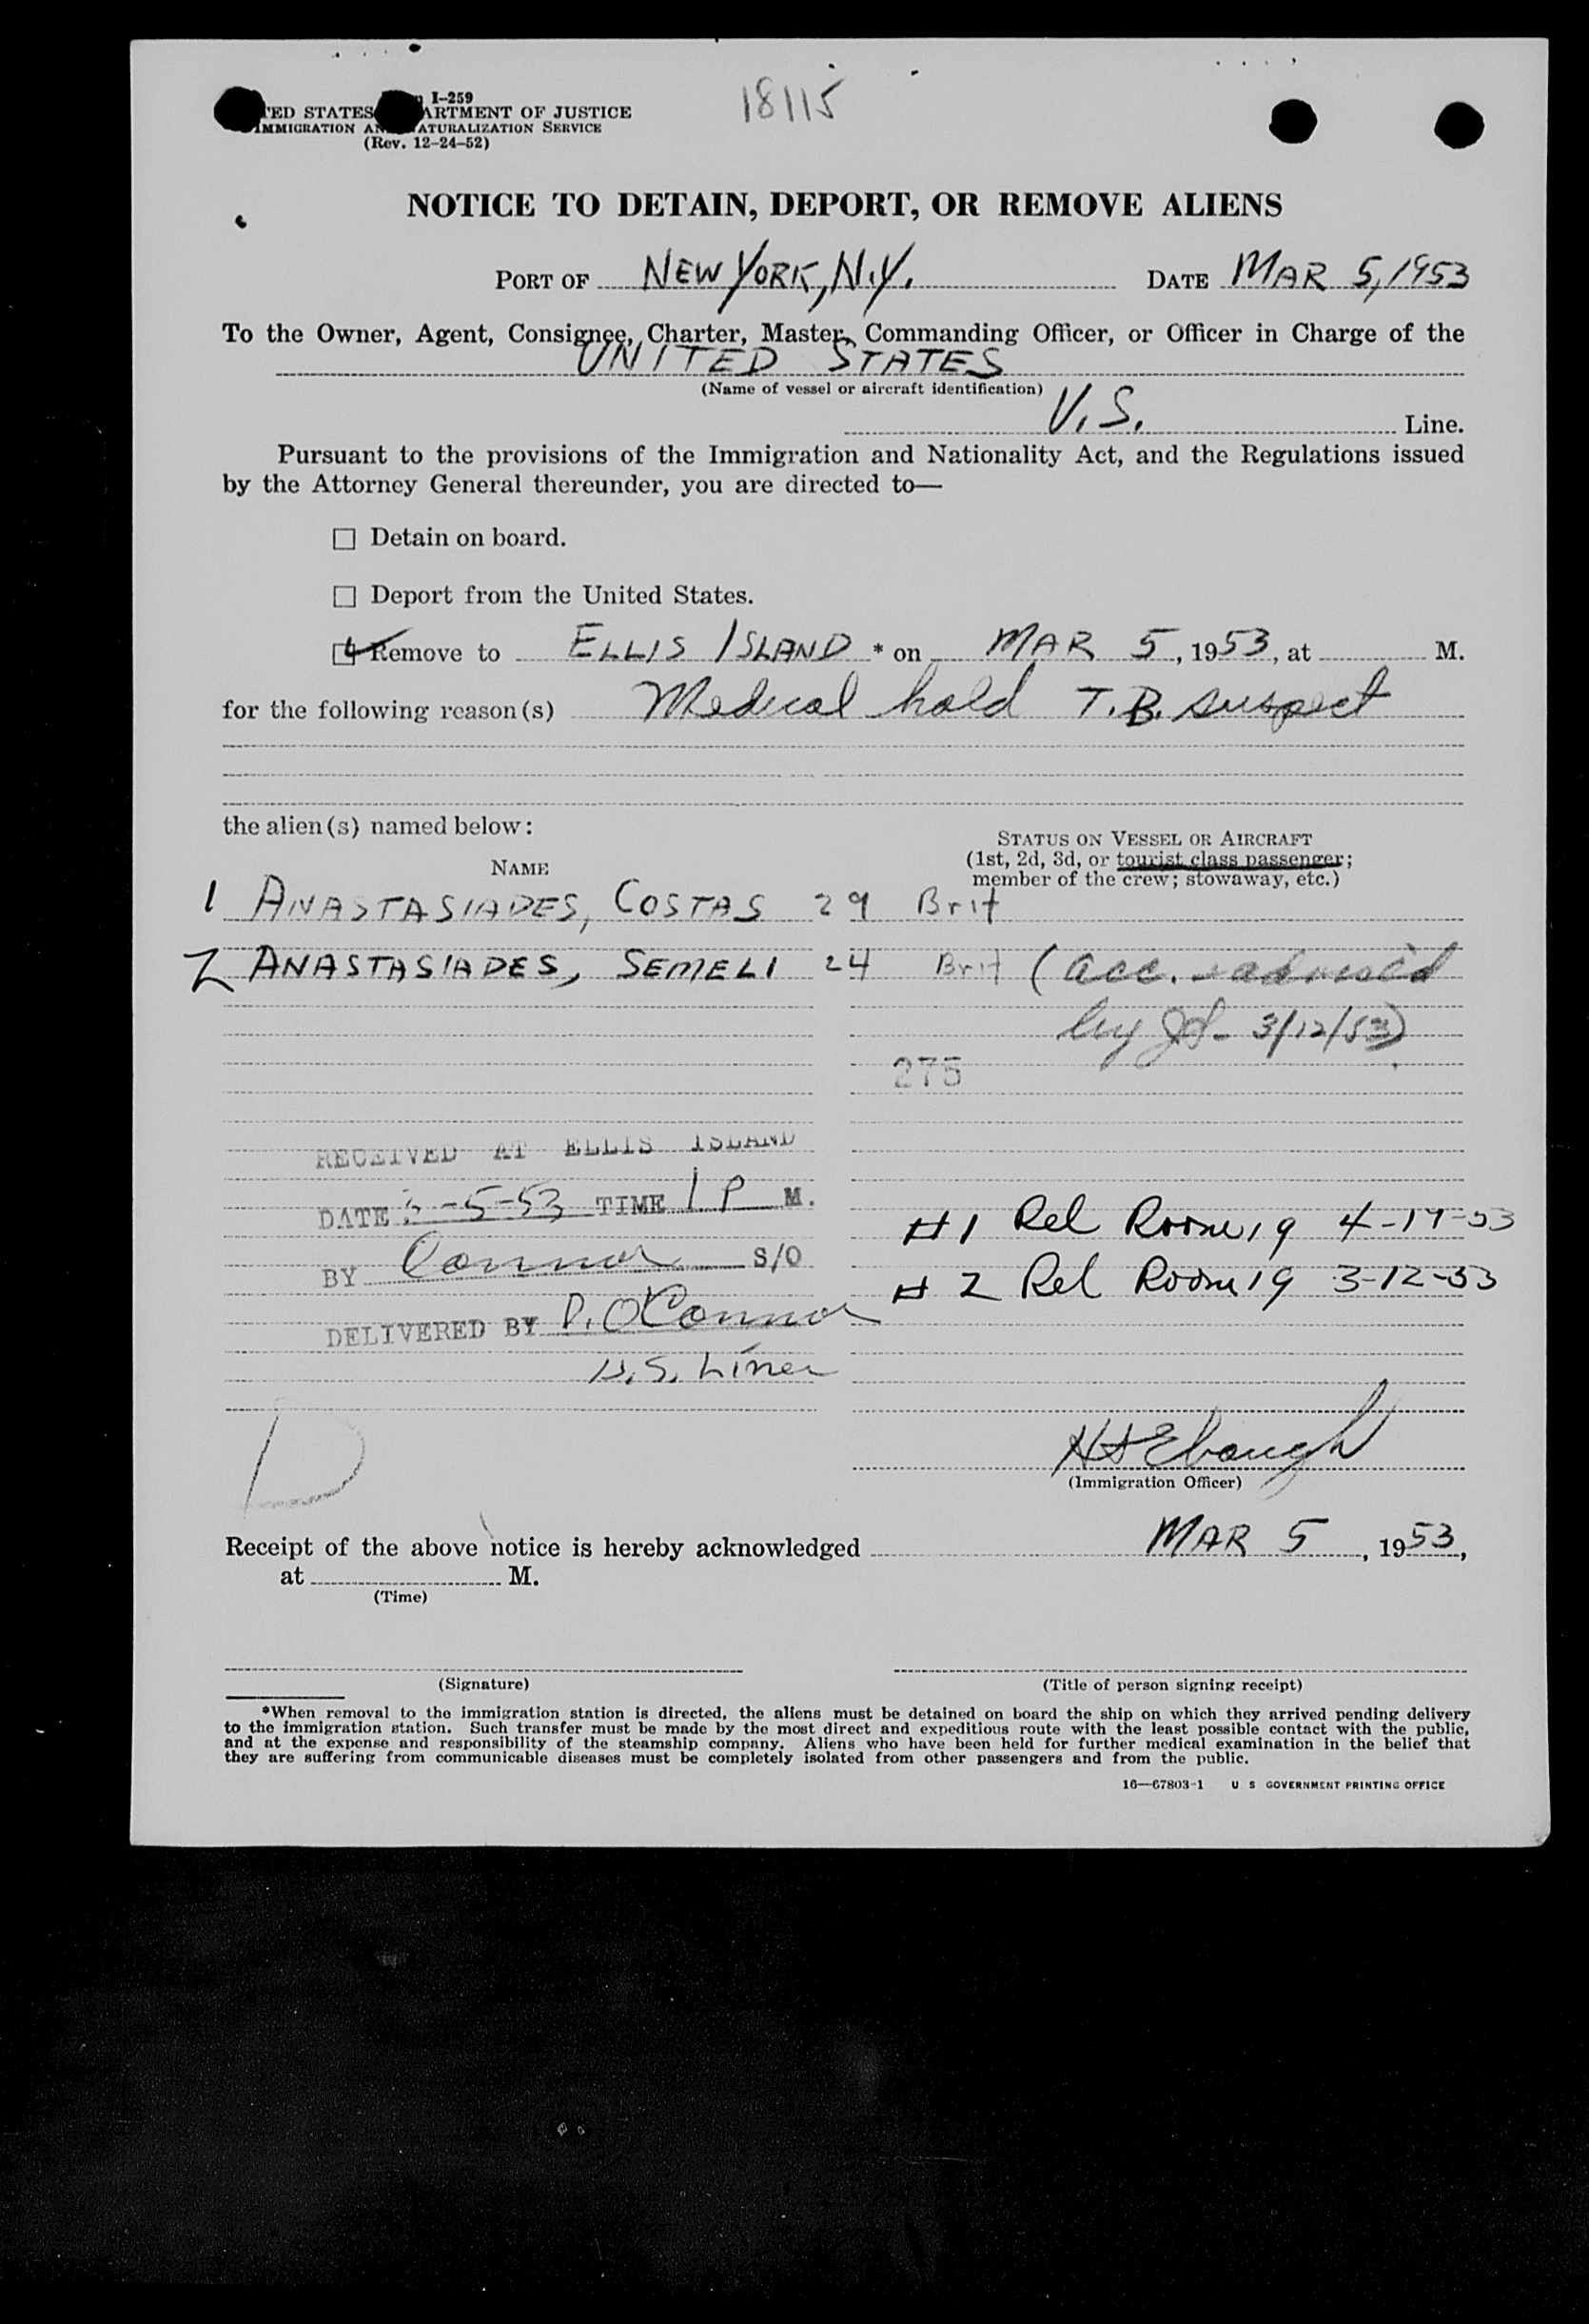 I-259
18115
TED STATES ARTMENT OF JUSTICE
IMMIGRATION AN ATURALIZATION SERVICE
(Rev. 12-24-52)
NOTICE TO DETAIN, DEPORT, OR REMOVE ALIENS
PORT OF NEW YORK, N.Y. DATE MAR 5, 1953
To the Owner, Agent, Consignee, Charter, Master, Commanding Officer, or Officer in Charge of the
UNITED STATES
(Name of vessel or aircraft identification)
U.S. Line.
Pursuant to the provisions of the Immigration and Nationality Act, and the Regulations issued
by the Attorney General thereunder, you are directed to—
Detain on board.
Deport from the United States.
Remove to ELLIS ISLAND * on MAR 5, 1953, at M.
for the following reason(s) Medical hold T.B. suspect
the alien(s) named below:
STATUS ON VESSEL OR AIRCRAFT
(1st, 2d, 3d, or tourist class passenger;
member of the crew; stowaway, etc.)
NAME
1 ANASTASIADES, COSTAS 29 Brit
2 ANASTASIADES, SEMELI 24 Brit (acc.
by 3/12/53)
275
RECEIVED AT ELLIS ISLAND
DATE 3-5-53 TIME 1 P M.
BY Connor S/O
DELIVERED BY P. O'Connor
U.S. Lines
#1 Rel Room 19 4-17-53
#2 Rel Room 19 3-12-53
D
H S Ebaugh
(Immigration Officer)
Receipt of the above notice is hereby acknowledged MAR 5, 1953,
at M.
(Time)
(Signature) (Title of person signing receipt)
*When removal to the immigration station is directed, the aliens must be detained on board the ship on which they arrived pending delivery
to the immigration station. Such transfer must be made by the most direct and expeditious route with the least possible contact with the public,
and at the expense and responsibility of the steamship company. Aliens who have been held for further medical examination in the belief that
they are suffering from communicable diseases must be completely isolated from other passengers and from the public.
16—67803-1 U S GOVERNMENT PRINTING OFFICE